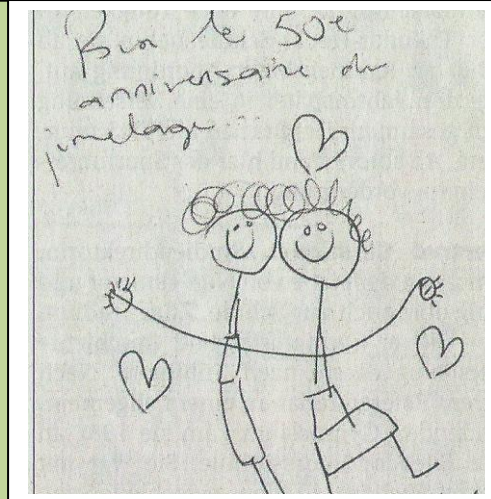 Pour le 50e
anniversaire du
jumelage...